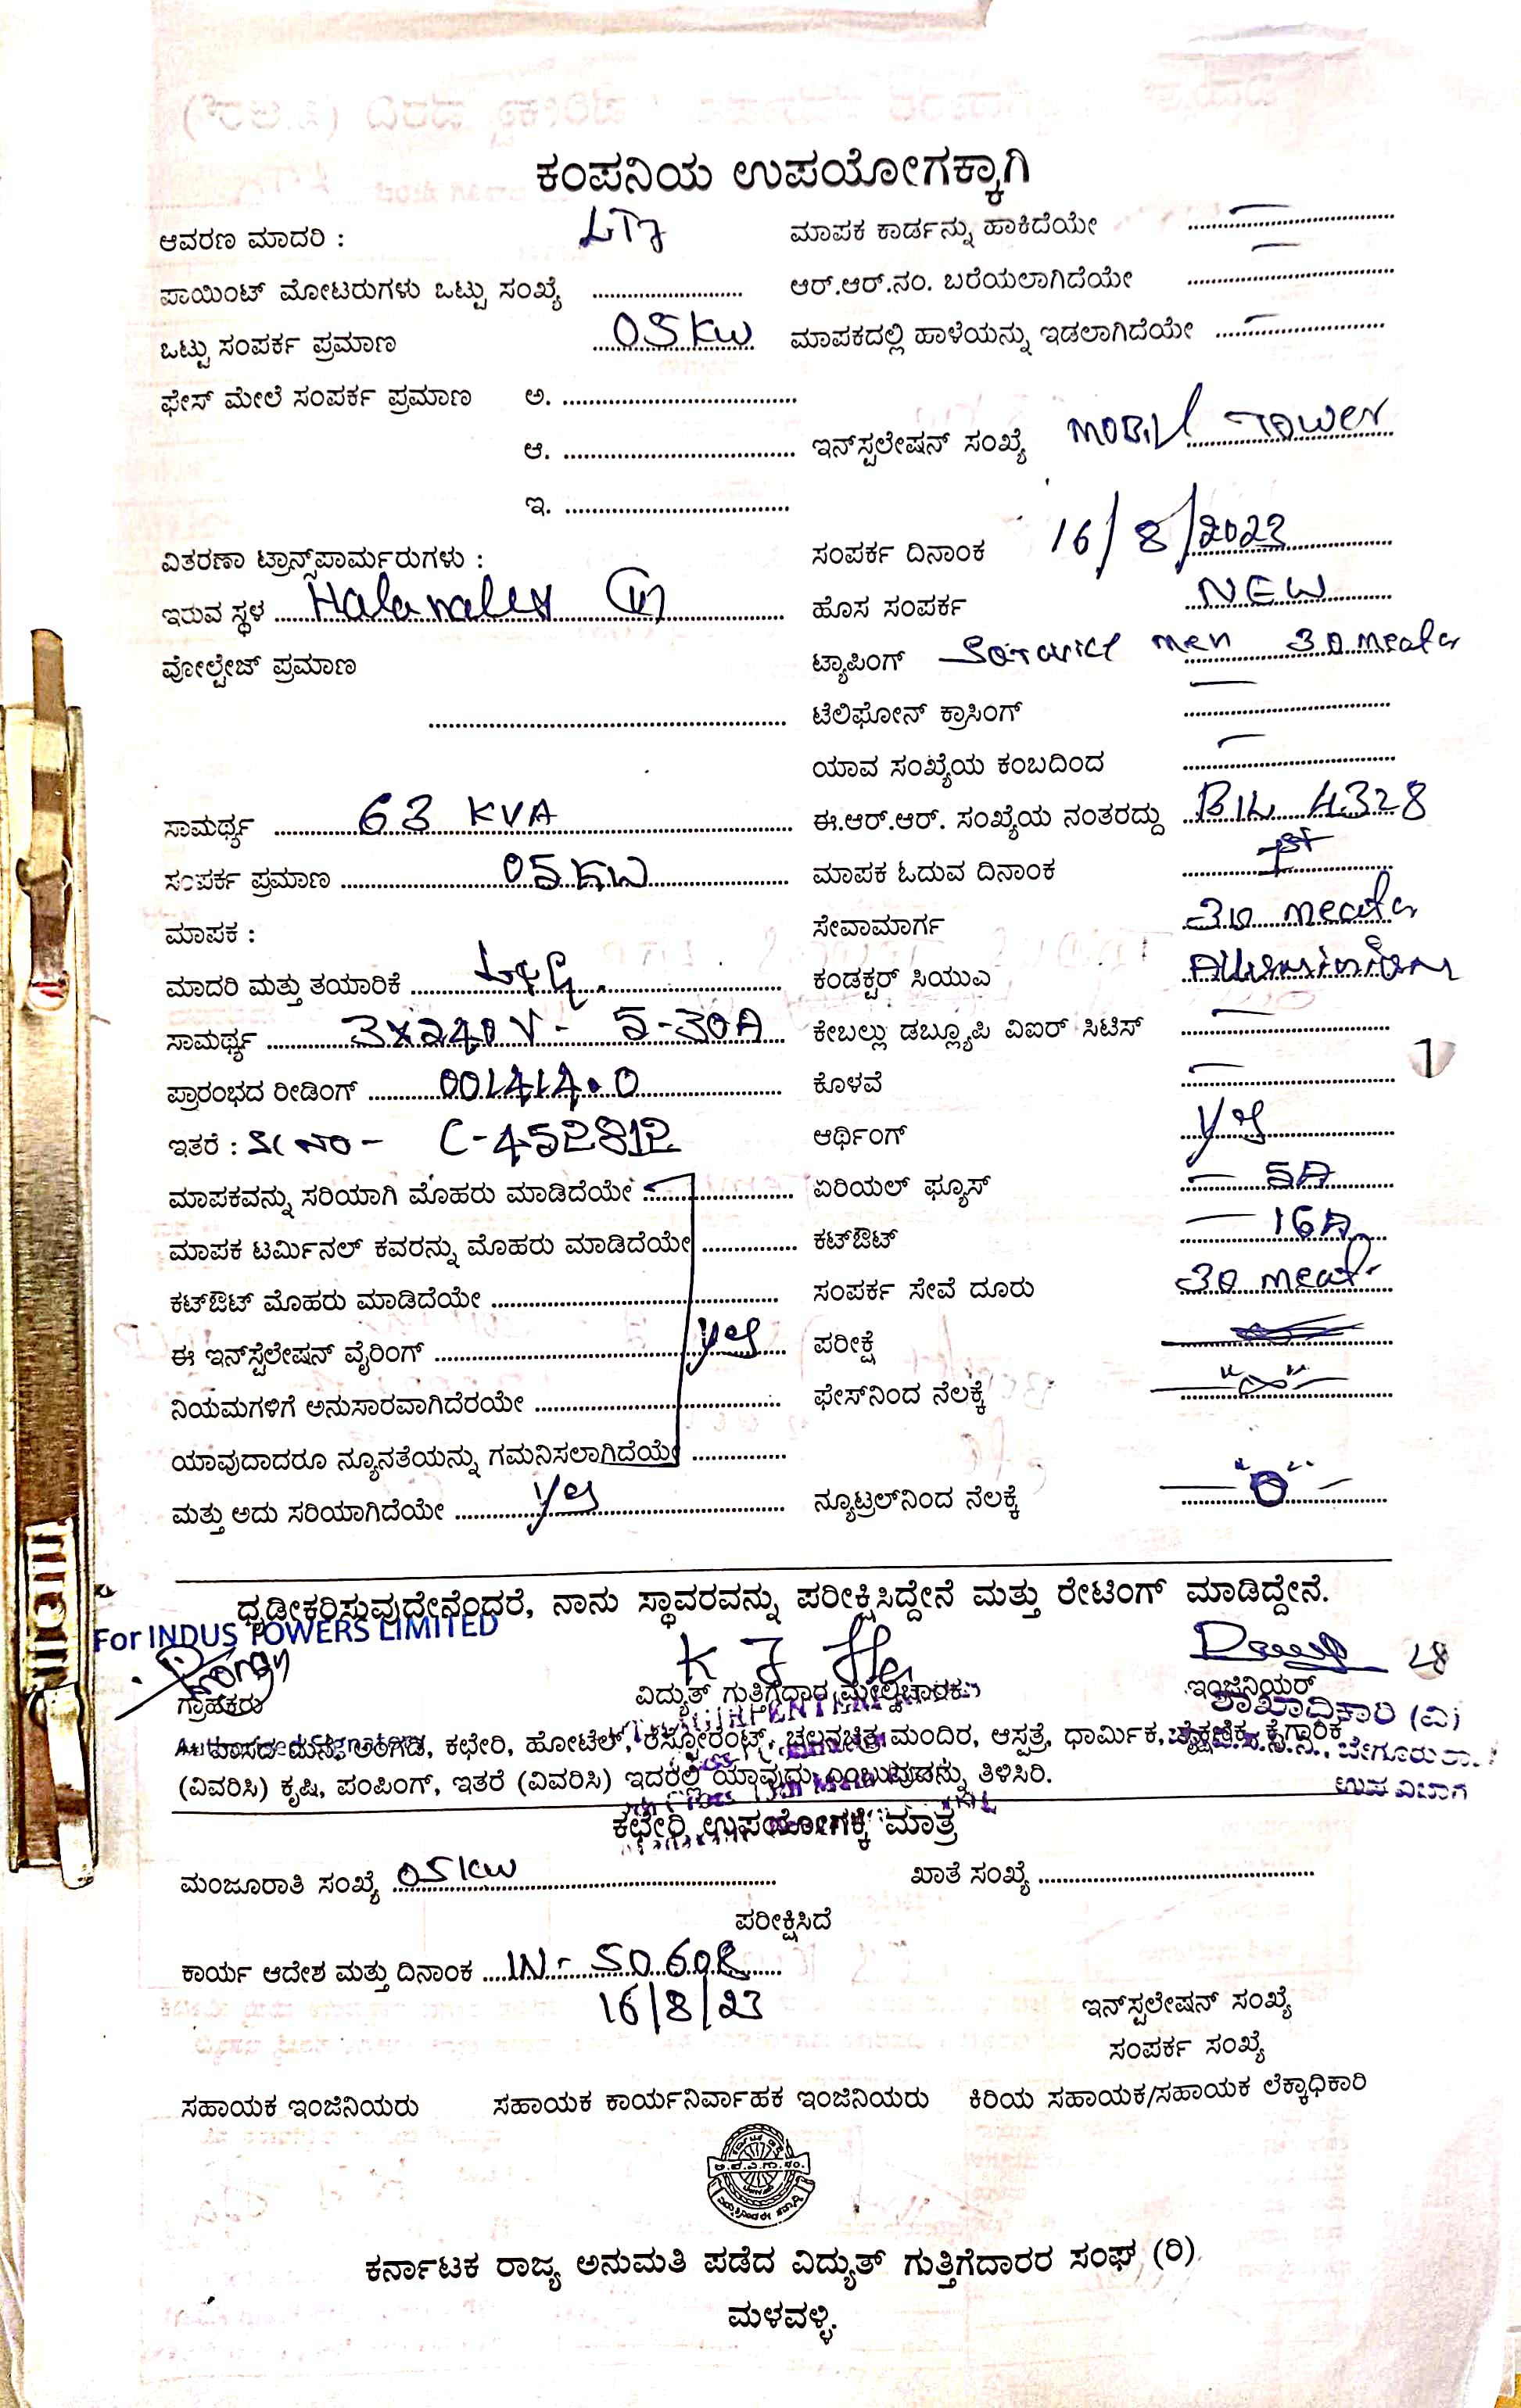 ಕಂಪನಿಯ ಉಪಯೋಗಕ್ಕಾಗಿ
ಆವರಣ ಮಾದರಿ : ಮಾಪಕ ಕಾರ್ಡನ್ನು ಹಾಕಿದೆಯೇ
ಪಾಯಿಂಟ್ ಮೋಟರುಗಳು ಒಟ್ಟು ಸಂಖ್ಯೆ ಆರ್.ಆರ್.ನಂ. ಬರೆಯಲಾಗಿದೆಯೇ
ಒಟ್ಟು ಸಂಪರ್ಕ ಪ್ರಮಾಣ 05 KW ಮಾಪಕದಲ್ಲಿ ಹಾಳೆಯನ್ನು ಇಡಲಾಗಿದೆಯೇ
ಫೇಸ್ ಮೇಲೆ ಸಂಪರ್ಕ ಪ್ರಮಾಣ ಅ.
ಆ. ಇನ್‌ಸ್ಟಲೇಷನ್ ಸಂಖ್ಯೆ Tower
ಇ.
ವಿತರಣಾ ಟ್ರಾನ್ಸ್‌ಪಾರ್ಮರುಗಳು : ಸಂಪರ್ಕ ದಿನಾಂಕ 16/8/2023
ಇರುವ ಸ್ಥಳ ಹೊಸ ಸಂಪರ್ಕ NEW
ವೋಲ್ಟೇಜ್ ಪ್ರಮಾಣ ಟ್ಯಾಪಿಂಗ್ men 30
ಟೆಲಿಫೋನ್ ಕ್ರಾಸಿಂಗ್
ಯಾವ ಸಂಖ್ಯೆಯ ಕಂಬದಿಂದ
ಸಾಮರ್ಥ್ಯ 63 KVA ಈ.ಆರ್.ಆರ್. ಸಂಖ್ಯೆಯ ನಂತರದ್ದು 4328
ಸಂಪರ್ಕ ಪ್ರಮಾಣ 05 KW ಮಾಪಕ ಓದುವ ದಿನಾಂಕ 1st
ಮಾಪಕ : ಸೇವಾಮಾರ್ಗ 30
ಮಾದರಿ ಮತ್ತು ತಯಾರಿಕೆ L&G. ಕಂಡಕ್ಟರ್ ಸಿಯುಎ
ಸಾಮರ್ಥ್ಯ 3x240V - 5-30A ಕೇಬಲ್ಲು ಡಬ್ಲ್ಯೂಪಿ ವಿಐರ್ ಸಿಟಿಸ್
ಪ್ರಾರಂಭದ ರೀಡಿಂಗ್ 001414.0 ಕೊಳವೆ
ಇತರೆ : Sl No - C-452812 ಆರ್ಥಿಂಗ್ Yes
ಮಾಪಕವನ್ನು ಸರಿಯಾಗಿ ಮೊಹರು ಮಾಡಿದೆಯೇ ಏರಿಯಲ್ ಫ್ಯೂಸ್ – 5A
ಮಾಪಕ ಟರ್ಮಿನಲ್ ಕವರನ್ನು ಮೊಹರು ಮಾಡಿದೆಯೇ ಕಟ್‌ಔಟ್ – 16A
ಕಟ್‌ಔಟ್ ಮೊಹರು ಮಾಡಿದೆಯೇ ಸಂಪರ್ಕ ಸೇವೆ ದೂರು 30
ಈ ಇನ್‌ಸ್ಟೆಲೇಷನ್ ವೈರಿಂಗ್ Yes ಪರೀಕ್ಷೆ
ನಿಯಮಗಳಿಗೆ ಅನುಸಾರವಾಗಿದೆರಯೇ ಫೇಸ್‌ನಿಂದ ನೆಲಕ್ಕೆ
ಯಾವುದಾದರೂ ನ್ಯೂನತೆಯನ್ನು ಗಮನಿಸಲಾಗಿದೆಯೇ
ಮತ್ತು ಅದು ಸರಿಯಾಗಿದೆಯೇ Yes ನ್ಯೂಟ್ರಲ್‌ನಿಂದ ನೆಲಕ್ಕೆ — "0" —
ಧೃಡೀಕರಿಸುವುದೇನೆಂದರೆ, ನಾನು ಸ್ಥಾವರವನ್ನು ಪರೀಕ್ಷಿಸಿದ್ದೇನೆ ಮತ್ತು ರೇಟಿಂಗ್ ಮಾಡಿದ್ದೇನೆ.
For INDUS TOWERS LIMITED
ಗ್ರಾಹಕರು ವಿದ್ಯುತ್ ಗುತ್ತಿಗೆದಾರ ಮೇಲ್ವಿಚಾರಕರು ಇಂಜಿನಿಯರ್
ಶಾಖಾಧಿಕಾರಿ (ವಿ)
ಕಛೇರಿ, ಹೋಟೆಲ್, ರೆಸ್ಟೋರೆಂಟ್, ಚಲನಚಿತ್ರ ಮಂದಿರ, ಆಸ್ಪತ್ರೆ, ಧಾರ್ಮಿಕ, ಶೈಕ್ಷಣಿಕ, ಕೈಗಾರಿಕೆ
(ವಿವರಿಸಿ) ಕೃಷಿ, ಪಂಪಿಂಗ್, ಇತರೆ (ವಿವರಿಸಿ) ಇದರಲ್ಲಿ ಯಾವುದು ಎಂಬುವುದನ್ನು ತಿಳಿಸಿರಿ.
ಉಪ ವಿಭಾಗ
ಕಛೇರಿ ಉಪಯೋಗಕ್ಕೆ ಮಾತ್ರ
ಮಂಜೂರಾತಿ ಸಂಖ್ಯೆ 05 KW ಖಾತೆ ಸಂಖ್ಯೆ
ಪರೀಕ್ಷಿಸಿದೆ
ಕಾರ್ಯ ಆದೇಶ ಮತ್ತು ದಿನಾಂಕ
16/8/23
ಇನ್‌ಸ್ಟಲೇಷನ್ ಸಂಖ್ಯೆ
ಸಂಪರ್ಕ ಸಂಖ್ಯೆ
ಸಹಾಯಕ ಇಂಜಿನಿಯರು ಸಹಾಯಕ ಕಾರ್ಯನಿರ್ವಾಹಕ ಇಂಜಿನಿಯರು ಕಿರಿಯ ಸಹಾಯಕ/ಸಹಾಯಕ ಲೆಕ್ಕಾಧಿಕಾರಿ
ಕರ್ನಾಟಕ ರಾಜ್ಯ ಅನುಮತಿ ಪಡೆದ ವಿದ್ಯುತ್ ಗುತ್ತಿಗೆದಾರರ ಸಂಘ (ರಿ).
ಮಳವಳ್ಳಿ.